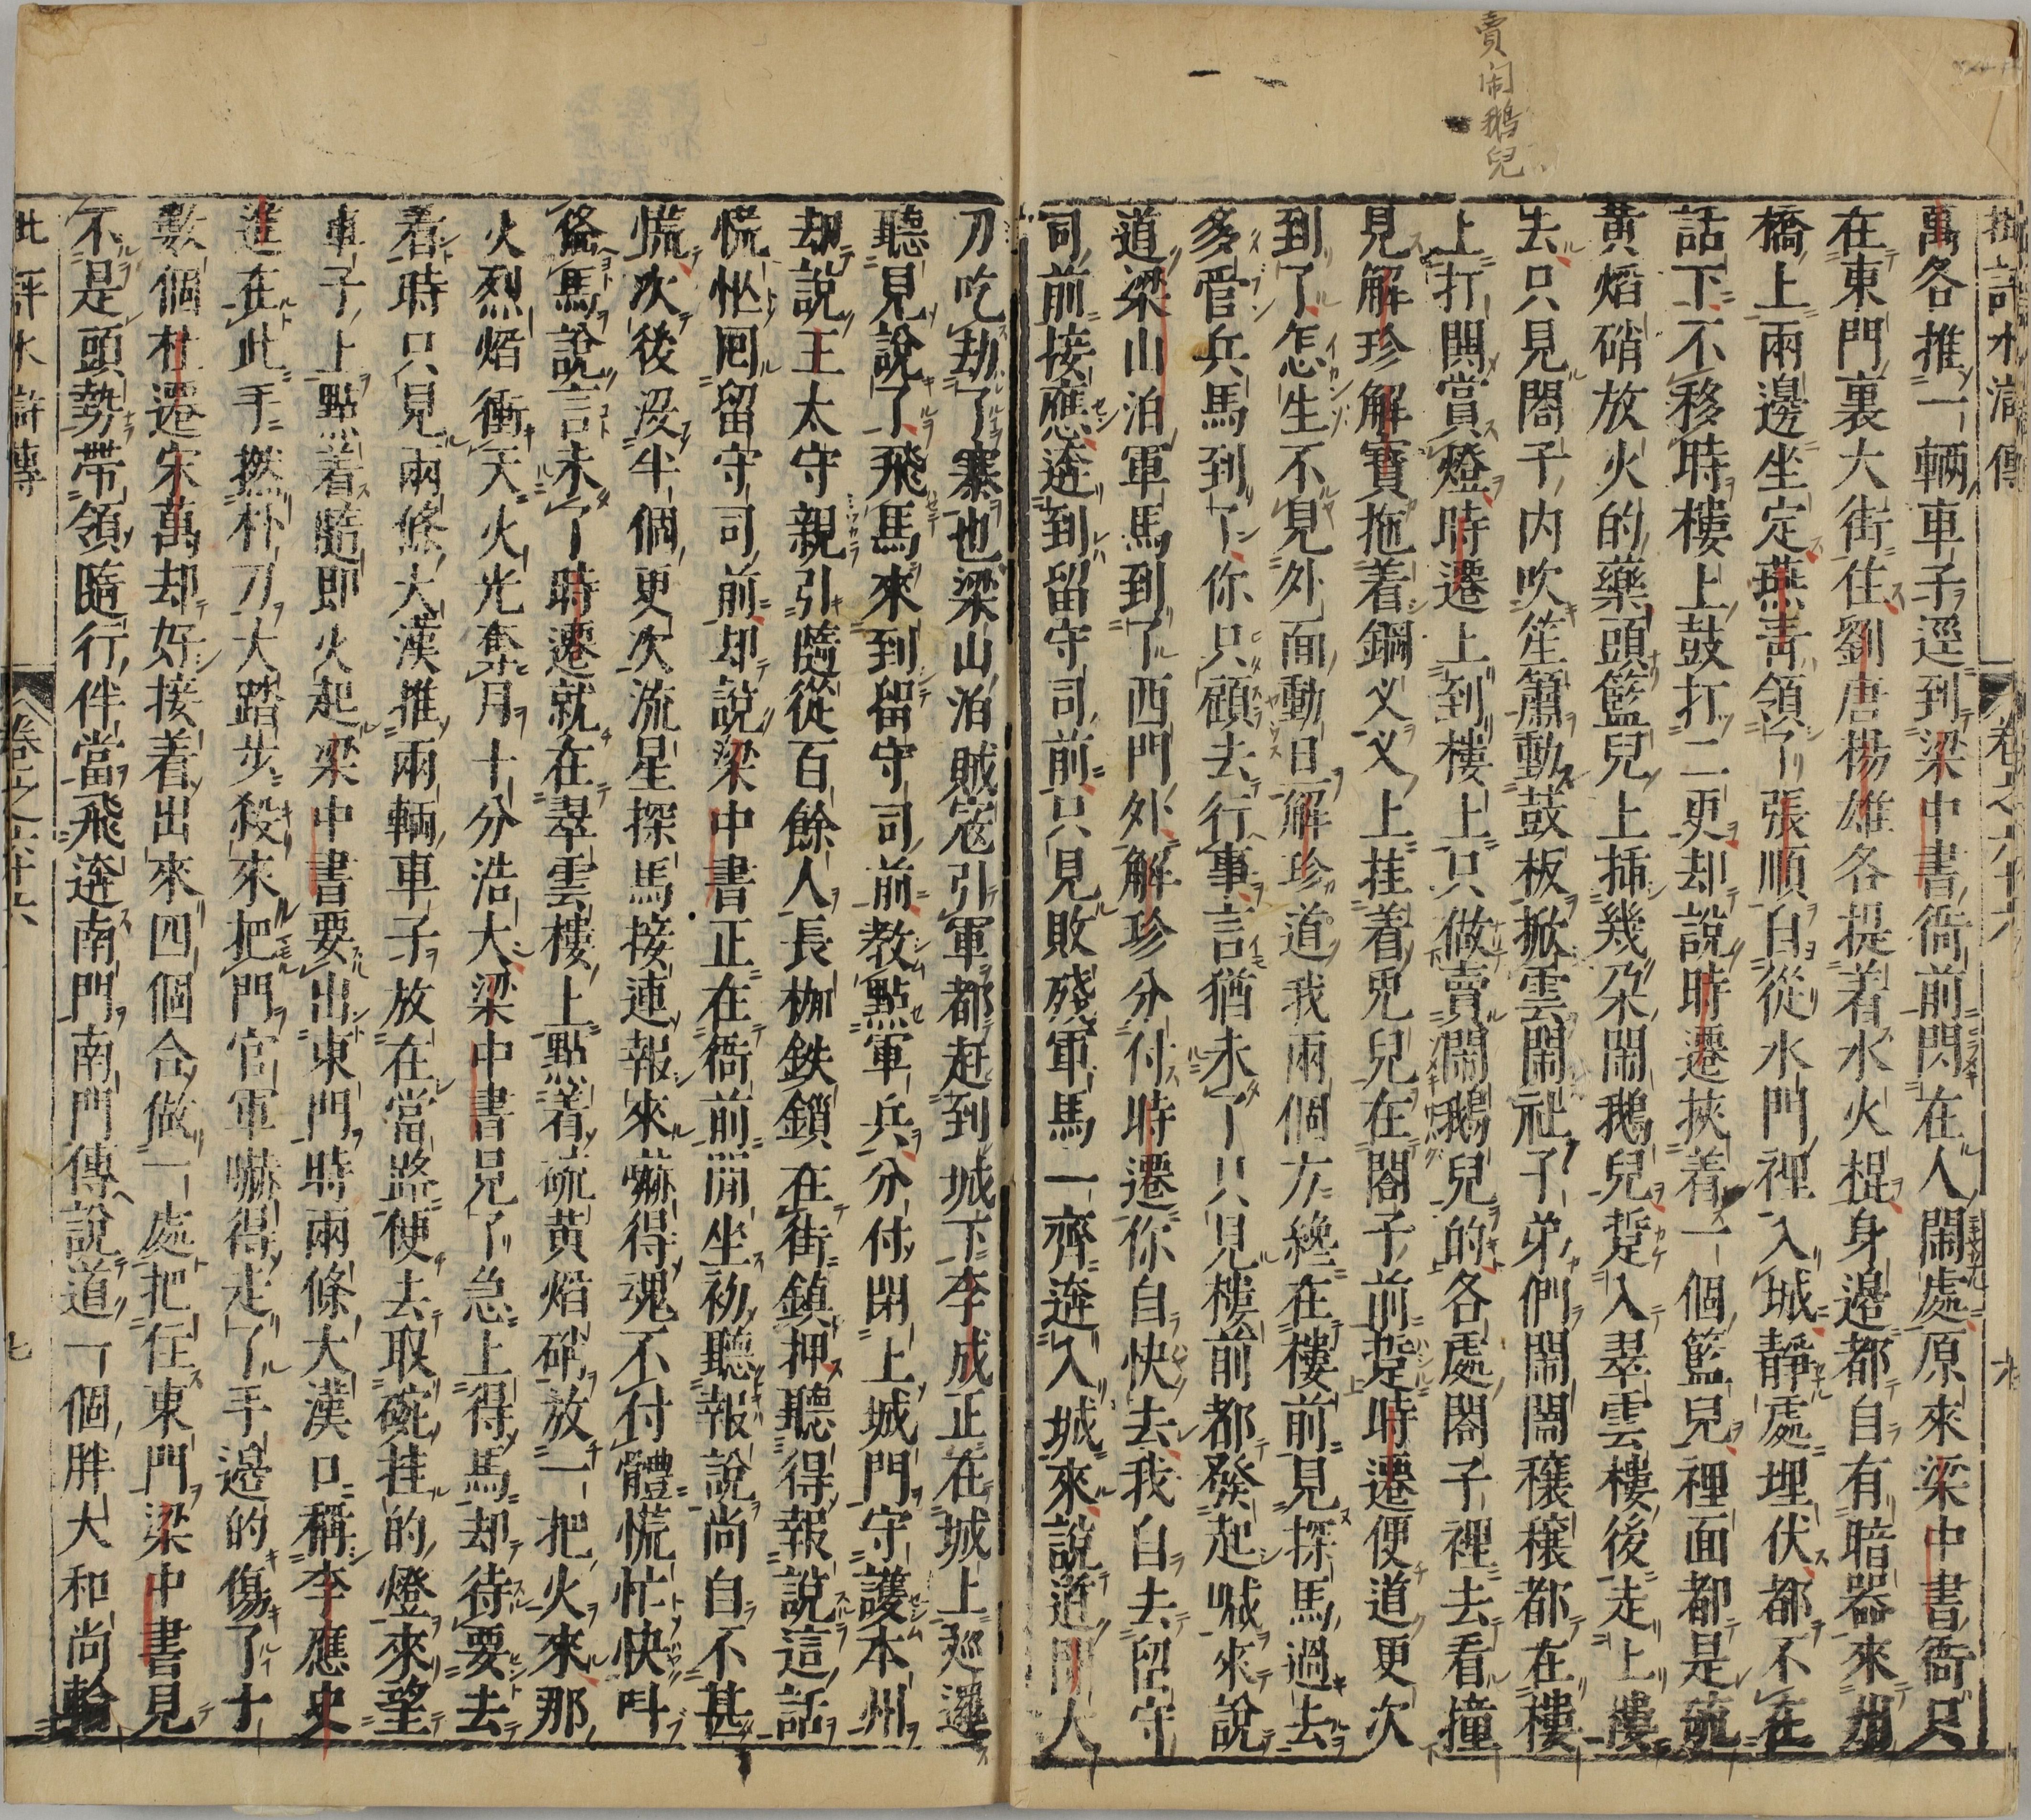 賣閙鵝兒
批評水滸傳 卷之六十六
萬各推一輛車子逕到梁中書衙前閃在人閙處原來梁中書衙只
在東門裏大街住劉唐楊雄各提着水火棍身邊都自有暗器來州
橋上兩邊坐定燕青領了張順自從水門裡入城靜處埋伏都不在
話下不移時樓上鼓打二更却說時遷挾着一個籃兒裡面都是硫
黄焰硝放火的藥頭籃兒上插幾朶閙鵝兒踅入翠雲樓後走上樓
去只見閣子内吹笙簫動鼓板掀雲閙社子弟們閙閙穰穰都在樓
上打閧賞燈時遷上到樓上只做賣閙鵝兒的各處閣子裡去看撞
見解珍解寶拖着鋼义义上挂着兎兒在閣子前踅時遷便道更次
到了怎生不見外面動旦解珍道我兩個方纔在樓前見探馬過去
多管兵馬到了你只顧去行事言猶未了只見樓前都發起喊來說
道梁山泊軍馬到了西門外解珍分付時遷你自快去我自去留守
司前接應遶到留守司前只見敗殘軍馬一齊遶入城來說道聞人
刀吃劫了寨也梁山泊賊宼引軍都赶到城下李成正在城上廵邏
聽見說了飛馬來到留守司前教點軍兵分付閉上城門守護本州
却說王太守親引隨從百餘人長枷鉄鎖在街鎮押聽得報說這話
慌忙囘留守司前却說梁中書正在衙前閒坐初聽報說尚自不甚
慌次後沒半個更次流星探馬接連報來嚇得魂不付體慌忙快呌
俻馬說言未了時遷就在翠雲樓上點着硫黄焰硝放一把火來那
火烈焰衝天火光奪月十分浩大梁中書見了急上得馬却待要去
看時只見兩條大漢推兩輛車子放在當路便去取碗挂的燈來望
車子上點着隨即火起梁中書要出東門時兩條大漢口稱李應史
進在此手撚朴刀大踏步殺來把門官軍嚇得走了手邊的傷了十
數個杜遷宋萬却好接着出來四個合做一處把住東門梁中書見
不是頭勢帶領隨行伴當飛遶南門南門傳說道一個胖大和尚輪
批評水滸傳 卷之六十六 七